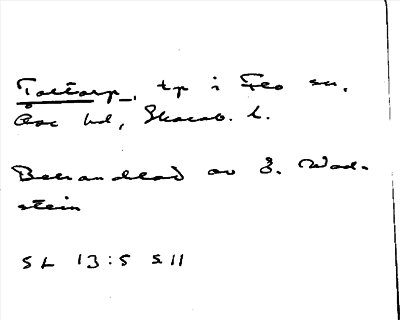 Tattarp, tp i Flo sn,
Åse hd, Skarab. l.
Behandlad av E. Wad-
stein
SL 13:5 s 11